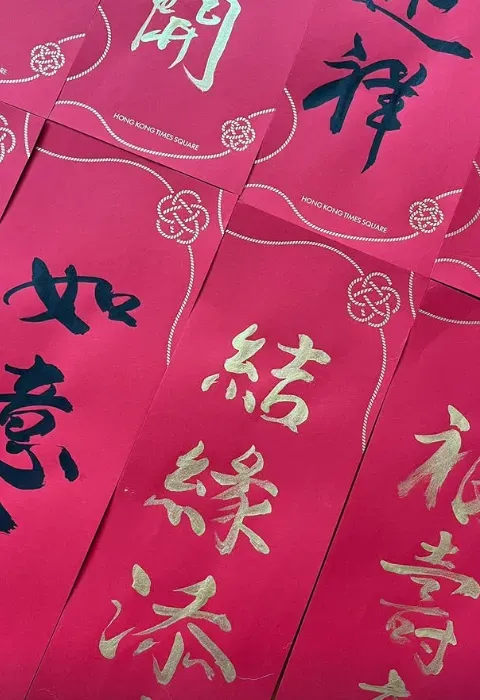 開
HONG KONG TIMES SQUARE
迎
祥
HONG KONG TIMES SQUARE
如
意
結
緣
添
福
壽